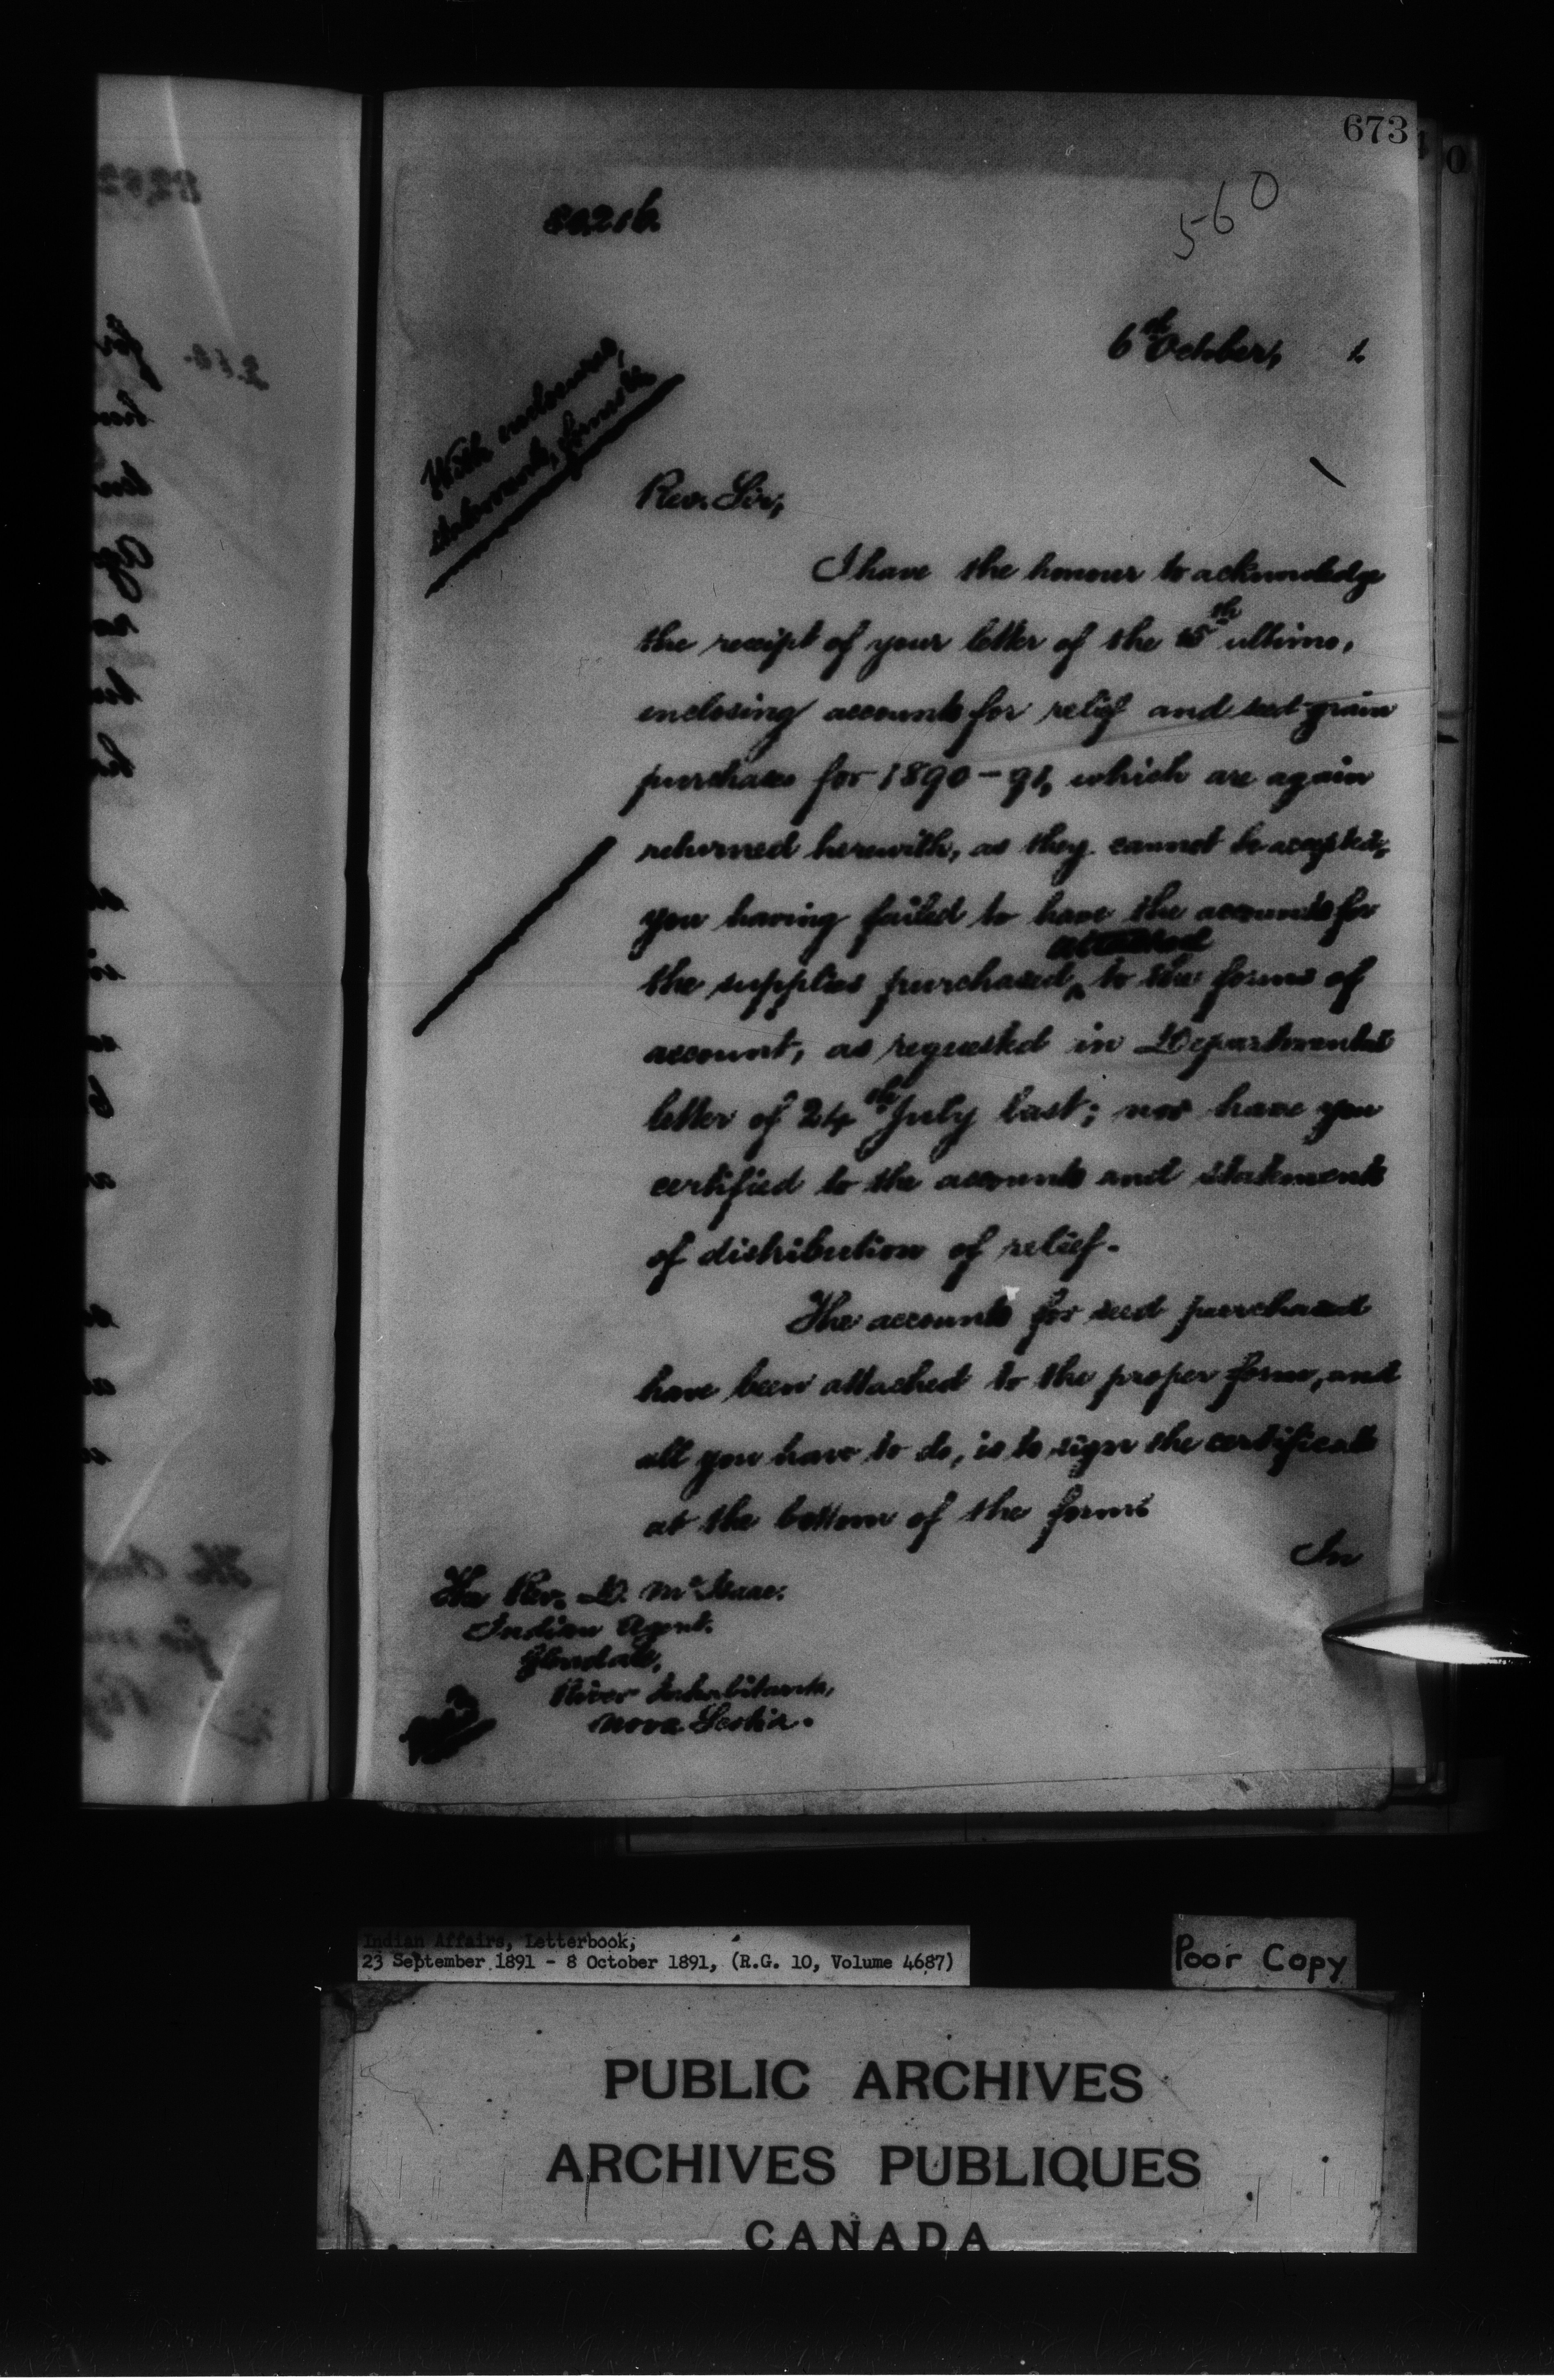 673
560
6th October, 1.
With enclosures,
Rev. Sir,
I have the honour to acknowledge
the receipt of your letter of the 15th ultimo,
enclosing accounts for relief and seed grain
purchases for 1890-91, which are again
returned herewith, as they cannot be accepted;
you having failed to have the accounts for
the supplies purchased attached to the forms of
account, as requested in Departmental
letter of 24th July last; nor have you
certified to the accounts and statements
of distribution of relief.
The accounts for seed purchased
have been attached to the proper form, and
all you have to do, is to sign the certificate
at the bottom of the forms
In
The Rev. D. McIsaac.
Indian Agent.
Glendale,
River Inhabitants,
Nova Scotia.
Indian Affairs, Letterbook,
23 September 1891 - 8 October 1891, (R.G. 10, Volume 4687)
Poor Copy
PUBLIC ARCHIVES
ARCHIVES PUBLIQUES
CANADA